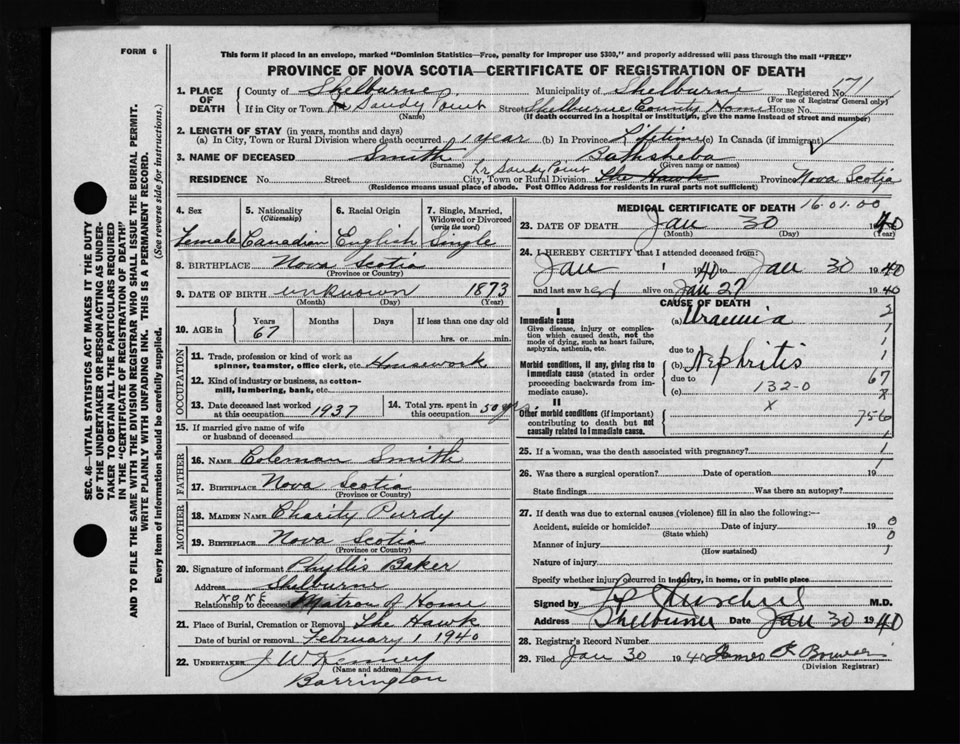 FORM 6
This form if placed in an envelope, marked "Dominion Statistics—Free, penalty for improper use $300," and properly addressed will pass through the mail "FREE"
PROVINCE OF NOVA SCOTIA—CERTIFICATE OF REGISTRATION OF DEATH
1. PLACE OF DEATH
County of Shelburne Municipality of Shelburne Registered No. 171
(For use of Registrar General only)
If in City or Town Lr Sandy Point Street Shelburne County Home House No.
(Name) (If death occurred in a hospital or institution, give the name instead of street and number)
2. LENGTH OF STAY (in years, months and days)
(a) In City, Town or Rural Division where death occurred 1 year (b) In Province Lifetime (c) In Canada (if immigrant)
3. NAME OF DECEASED Smith Bathsheba
(Surname) (Given name or names)
Lr Sandy Point
RESIDENCE No. Street City, Town or Rural Division The Hawk Province Nova Scotia
(Residence means usual place of abode. Post Office Address for residents in rural parts not sufficient)
4. Sex
Female
5. Nationality
(Citizenship)
Canadian
6. Racial Origin
English
7. Single, Married,
Widowed or Divorced
(write the word)
Single
8. BIRTHPLACE Nova Scotia
(Province or Country)
9. DATE OF BIRTH unknown 1873
(Month) (Day) (Year)
10. AGE in
Years Months Days If less than one day old
67 hrs. or min.
OCCUPATION
11. Trade, profession or kind of work as
spinner, teamster, office clerk, etc. Housework
12. Kind of industry or business, as cotton-
mill, lumbering, bank, etc.
13. Date deceased last worked
at this occupation 1937
14. Total yrs. spent in
this occupation 50 yrs.
15. If married give name of wife
or husband of deceased
FATHER
16. NAME Coleman Smith
17. BIRTHPLACE Nova Scotia
(Province or Country)
MOTHER
18. MAIDEN NAME Charity Purdy
19. BIRTHPLACE Nova Scotia
(Province or Country)
20. Signature of informant Phyllis Baker
Address Shelburne
Relationship to deceased NONE Matron of Home
21. Place of Burial, Cremation or Removal The Hawk
Date of burial or removal February 1 1940
22. UNDERTAKER J W Kenney
(Name and address)
Barrington
MEDICAL CERTIFICATE OF DEATH 16.01.00
23. DATE OF DEATH Jan 30 1940
(Month) (Day) (Year)
24. I HEREBY CERTIFY that I attended deceased from:
Jan 1 1940 to Jan 30 1940
and last saw her alive on Jan 27 1940
CAUSE OF DEATH
I
Immediate cause (a) Uraemia
Give disease, injury or complica-
tion which caused death, not the
mode of dying, such as heart failure,
asphyxia, asthenia, etc.
due to
Morbid conditions, if any, giving rise to
immediate cause (stated in order
proceeding backwards from im-
mediate cause).
(b) Nephritis
due to
(c) 132-0
x
II
Other morbid conditions (if important)
contributing to death but not
causally related to immediate cause.
2
1
1
1
67
x
756
1
25. If a woman, was the death associated with pregnancy? 1
26. Was there a surgical operation? Date of operation 19
State findings Was there an autopsy?
27. If death was due to external causes (violence) fill in also the following:—
Accident, suicide or homicide? Date of injury 19
(State which)
Manner of injury
(How sustained)
Nature of injury
0
0
1
Specify whether injury occurred in industry, in home, or in public place
Signed by M.D.
Address Shelburne Date Jan 30 1940
28. Registrar's Record Number
29. Filed Jan 30 1940 James
(Division Registrar)
SEC. 46—VITAL STATISTICS ACT MAKES IT THE DUTY
OF THE UNDERTAKER OR PERSON ACTING AS UNDER-
TAKER TO OBTAIN ALL THE PARTICULARS REQUIRED
IN THE "CERTIFICATE OF REGISTRATION OF DEATH"
AND TO FILE THE SAME WITH THE DIVISION REGISTRAR WHO SHALL ISSUE THE BURIAL PERMIT.
WRITE PLAINLY WITH UNFADING INK. THIS IS A PERMANENT RECORD.
Every item of information should be carefully supplied. (See reverse side for instructions.)